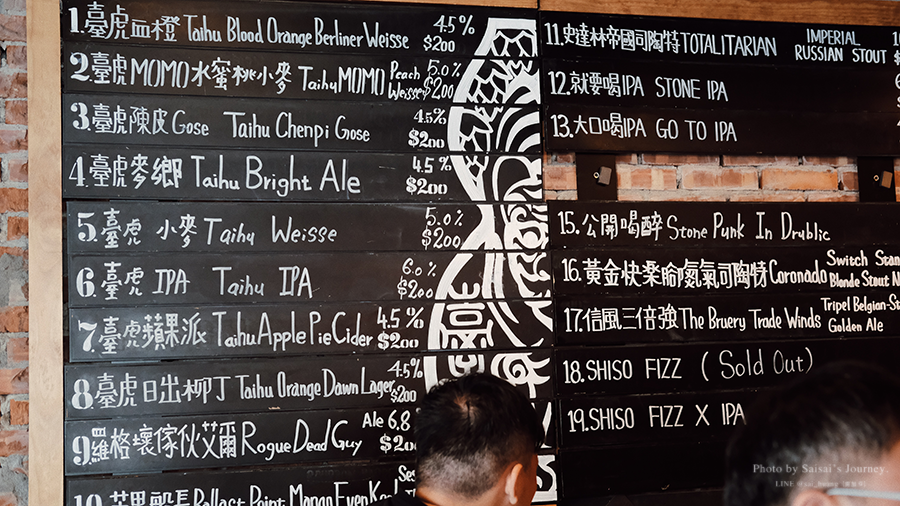 1.臺虎血橙 Taihu Blood Orange Berliner Weisse 4.5% $200
2.臺虎MOMO水蜜桃小麥 Taihu MOMO Peach Weisse 5.0% $200
3.臺虎陳皮Gose Taihu Chenpi Gose 4.5% $200
4.臺虎麥鄉 Taihu Bright Ale 4.5% $200
5.臺虎 小麥 Taihu Weisse 5.0% $200
6.臺虎 IPA Taihu IPA 6.0% $200
7.臺虎蘋果派 Taihu Apple Pie Cider 4.5% $200
8.臺虎日出柳丁 Taihu Orange Dawn Lager 4.5% $200
9.羅格壞傢伙艾爾 Rogue Dead Guy Ale 6.8
10. Ballast Point Mango Even
11.史達林帝國司陶特TOTALITARIAN IMPERIAL RUSSIAN STOUT
12.就要喝IPA STONE IPA
13.大口喝IPA GO TO IPA
15.公開喝醉 Stone Punk In Drublic
16.黃金快桑氮氣司陶特 Coronado Switch Stan Blonde Stout N
17.信風三倍強The Bruery Trade Winds Tripel Belgian-St Golden Ale
18.SHISO FIZZ (Sold Out)
19.SHISO FIZZ X IPA
Photo by Saisai's Journey.